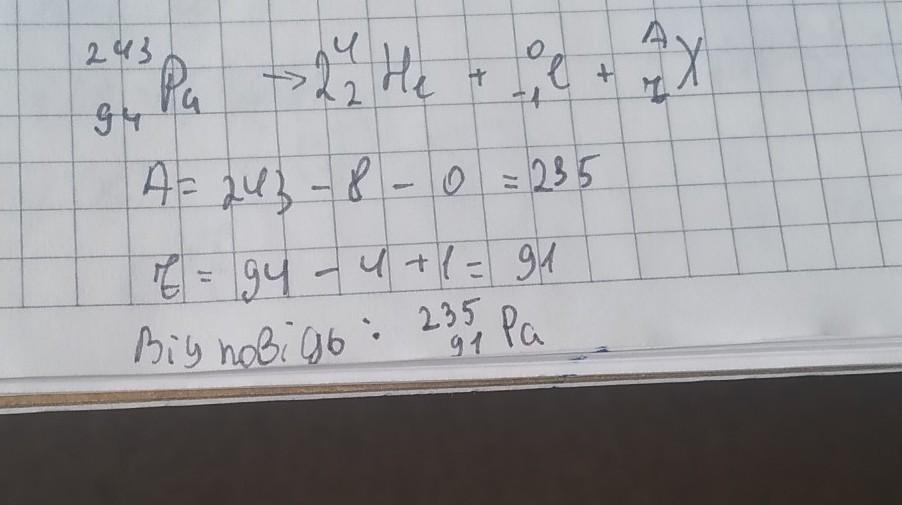 ²⁴³₉₄Pa → 2⁴₂He + ⁰₋₁e + ᴬ_Z X
A = 243 - 8 - 0 = 235
Z = 94 - 4 + 1 = 91
Відповідь: ²³⁵₉₁Pa